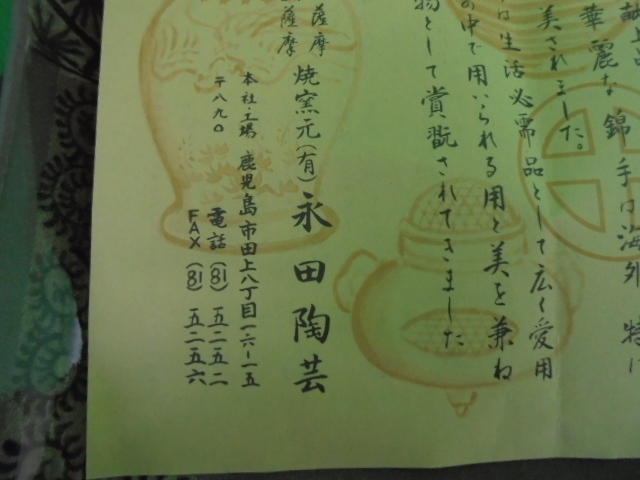 献上品
華麗な錦手は海外、特に
美されました。
は生活必需品として広く愛用
の中で用いられる用と美を兼ね
物として賞翫されてきました
薩摩
薩摩 焼窯元(有)永田陶芸
本社・工場 鹿児島市田上八丁目一六ー一五
〒八九〇 電話(81)五二五二
FAX(81)五二五六